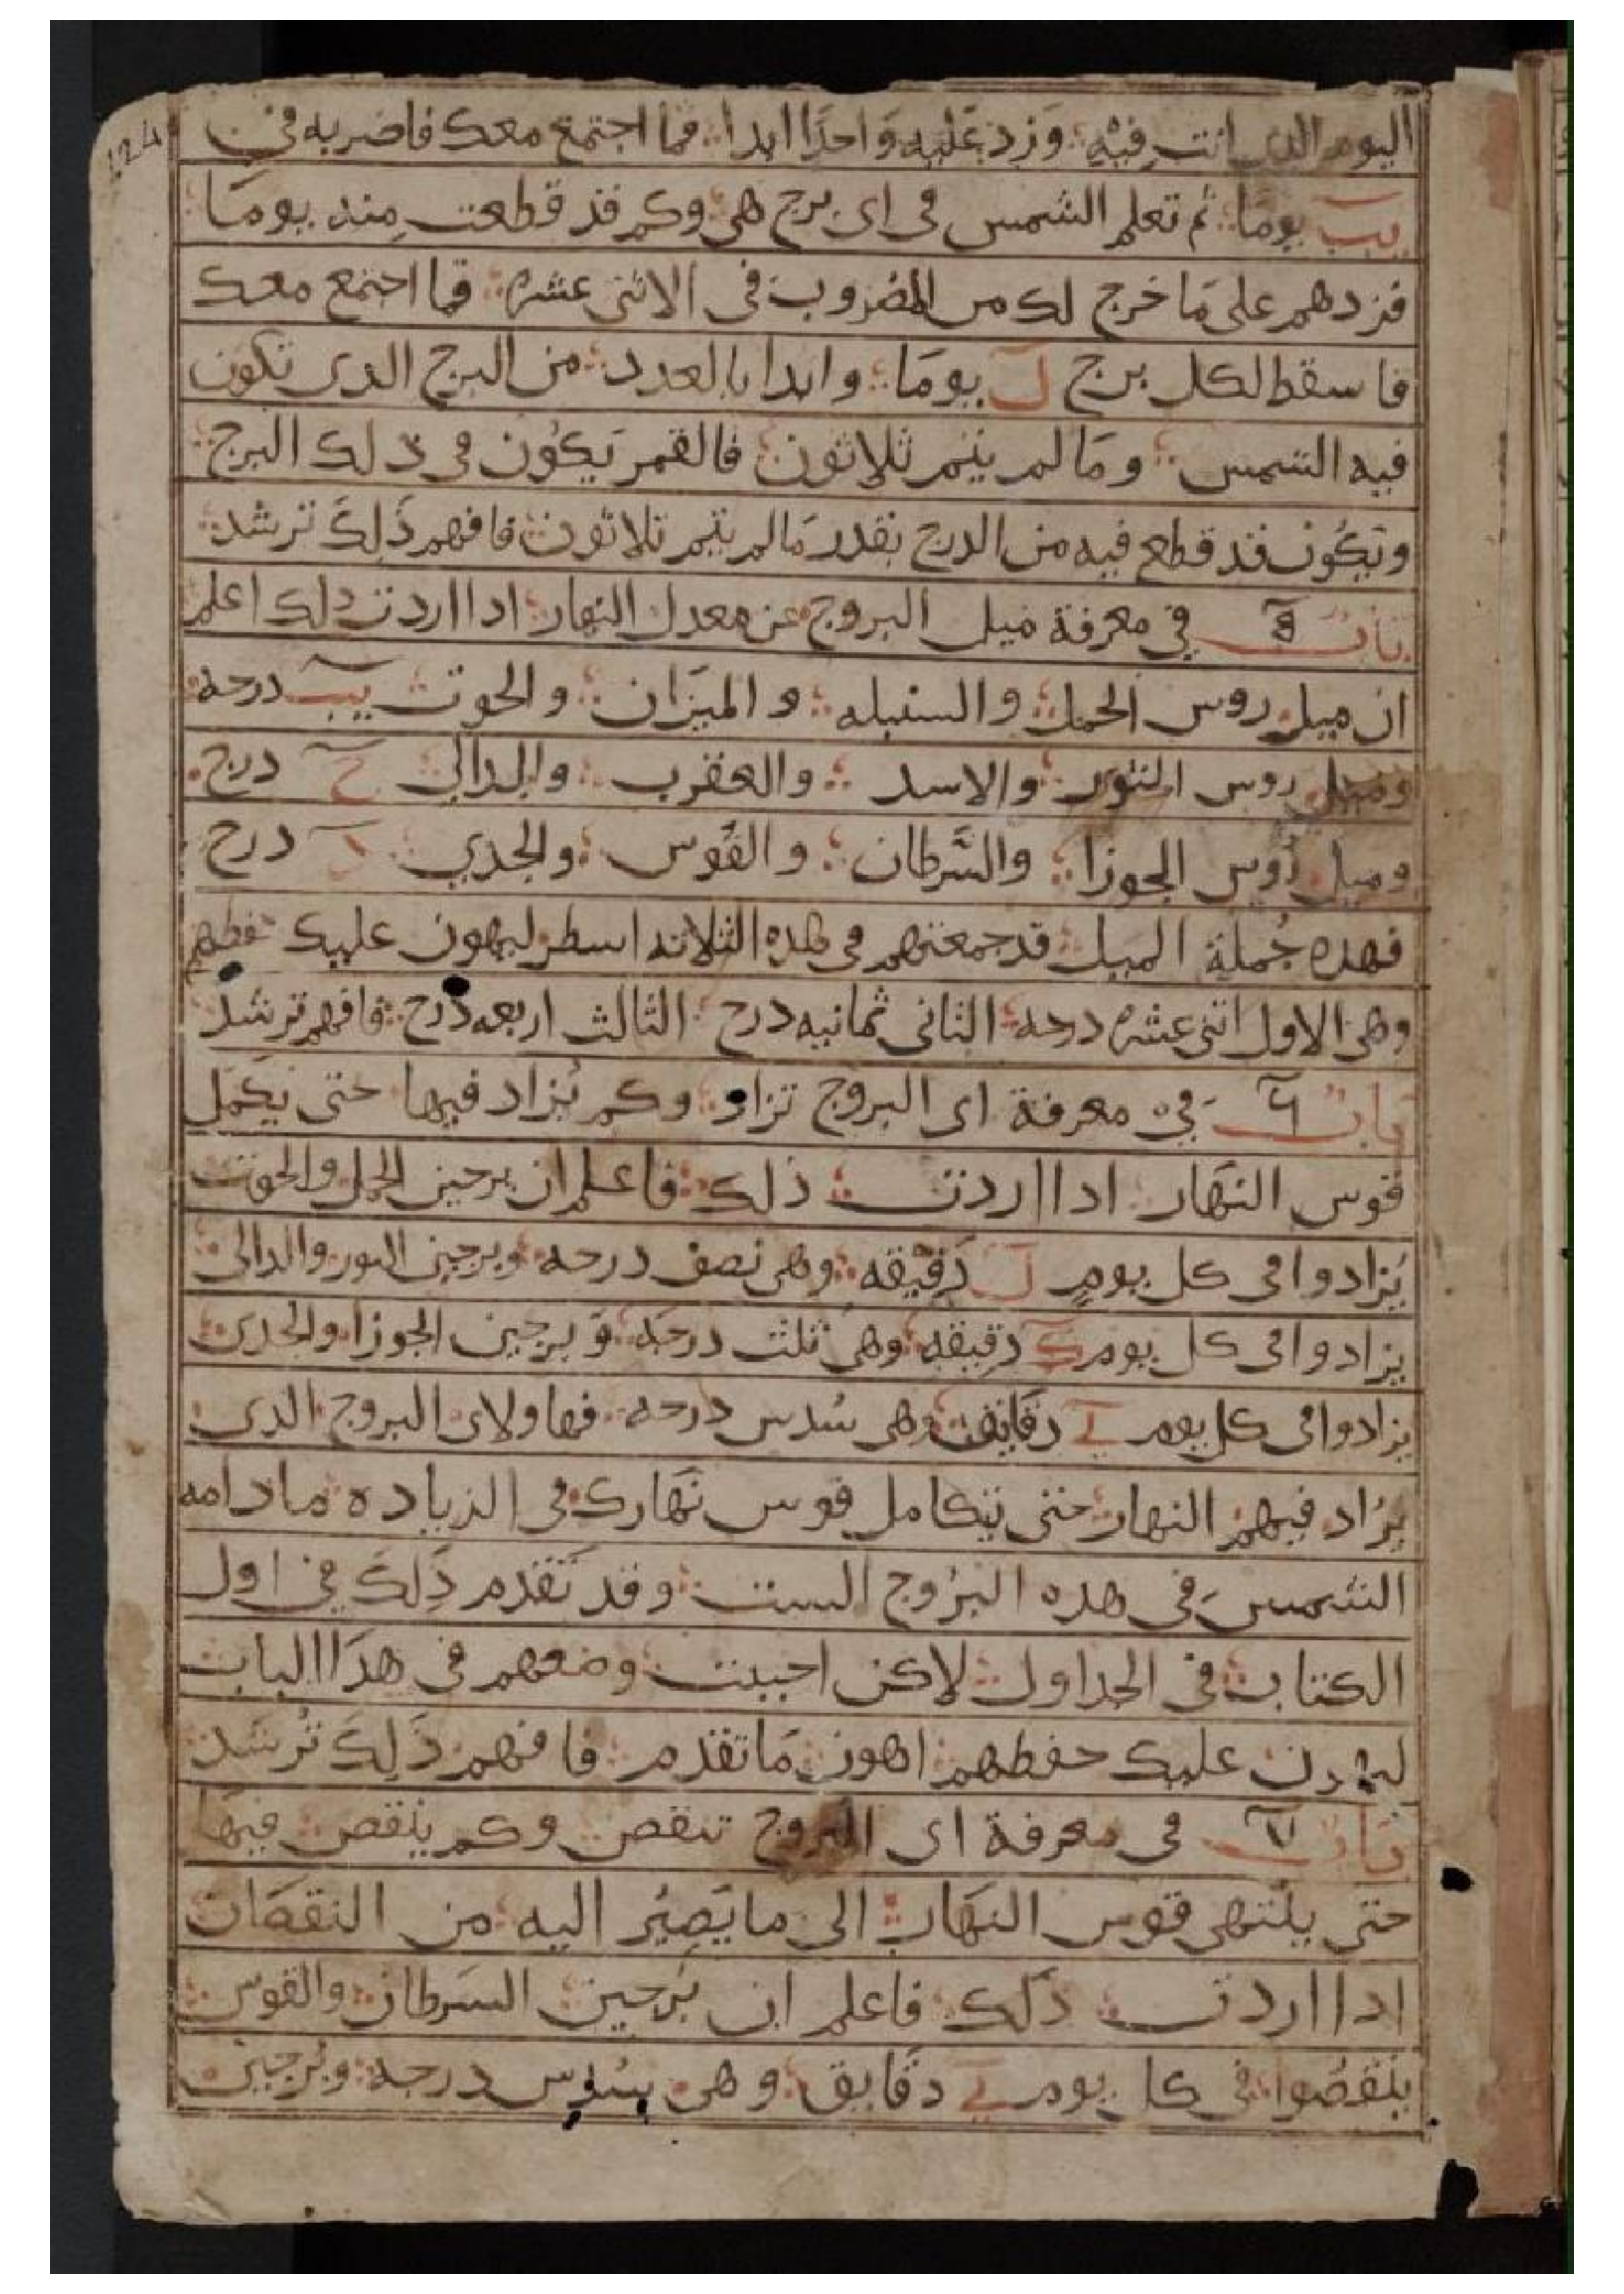 اليوم الذى انت فيه وزد عليه واحدا ابدا فما اجتمع معك فاضربه في
يب يوما ثم تعلم الشمس فى اى برج هى وكم قد قطعت منه يوما
فزدهم على ما خرج لك من المضروب فى الاثنى عشره فما اجتمع معك
فاسقط لكل برج ل يوما وابدا بالعدد من البرج الدى تكون
فيه الشمس وما لم يتم ثلاثون فالقمر يكون فى دلك البرج
ويكون قد قطع فيه من الدرج بقدر ما لم يتم ثلاثون فافهم ذلك ترشد
باب في معرفة ميل البروج عن معدل النهار ادا اردت دلك اعلم
ان ميل روس الحمل والسنبله والميزان والحوت يب درجه
وميل روس الثور والاسد والعقرب والدالى ح درج
وميل روس الجوزا والسرطان والقوس والجدي د درج
فهده جملة الميل قد جمعتهم فى هده الثلاثه اسطر ليهون عليك حفظهم
وهى الاول اثنى عشره درجه الثانى ثمانيه درج الثالث اربعه درج فافهم ترشد
باب في معرفة اى البروج تزاد وكم يزاد فيها حتى يكمل
قوس النهار ادا اردت ذلك فاعلم ان برجين الحمل والحوت
يزادوا فى كل يوم ل دقيقه وهى نصف درجه وبرجين الثور والدالى
يزادوا فى كل يوم ك دقيقه وهى ثلث درجه وبرجين الجوزا والجدى
يزادوا فى كل يوم ي دقايق وهى سدس درجه فهاولاى البروج الدى
يزاد فيهم النهار حتى يتكامل قوس نهارك فى الزياده مادامه
الشمس فى هده البروج الست وقد تقدم ذلك في اول
الكتاب فى الجداول لاكن احببت وضعهم فى هدا الباب
ليهون عليك حفظهم اهون ما تقدم فافهم ذلك ترشد
باب فى معرفة اى البروج تنقص وكم ينقص فيها
حتى ينتهى قوس النهار الى ما يصير اليه من النقصان
ادا اردت ذلك فاعلم ان برجين السرطان والقوس
ينقصوا فى كل يوم ي دقايق وهى سدس درجه وبرجين